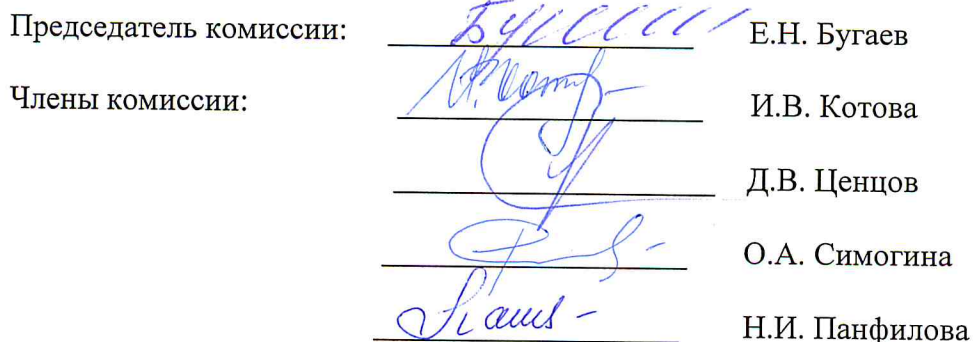 Председатель комиссии: Е.Н. Бугаев
Члены комиссии: И.В. Котова
Д.В. Ценцов
О.А. Симогина
Н.И. Панфилова